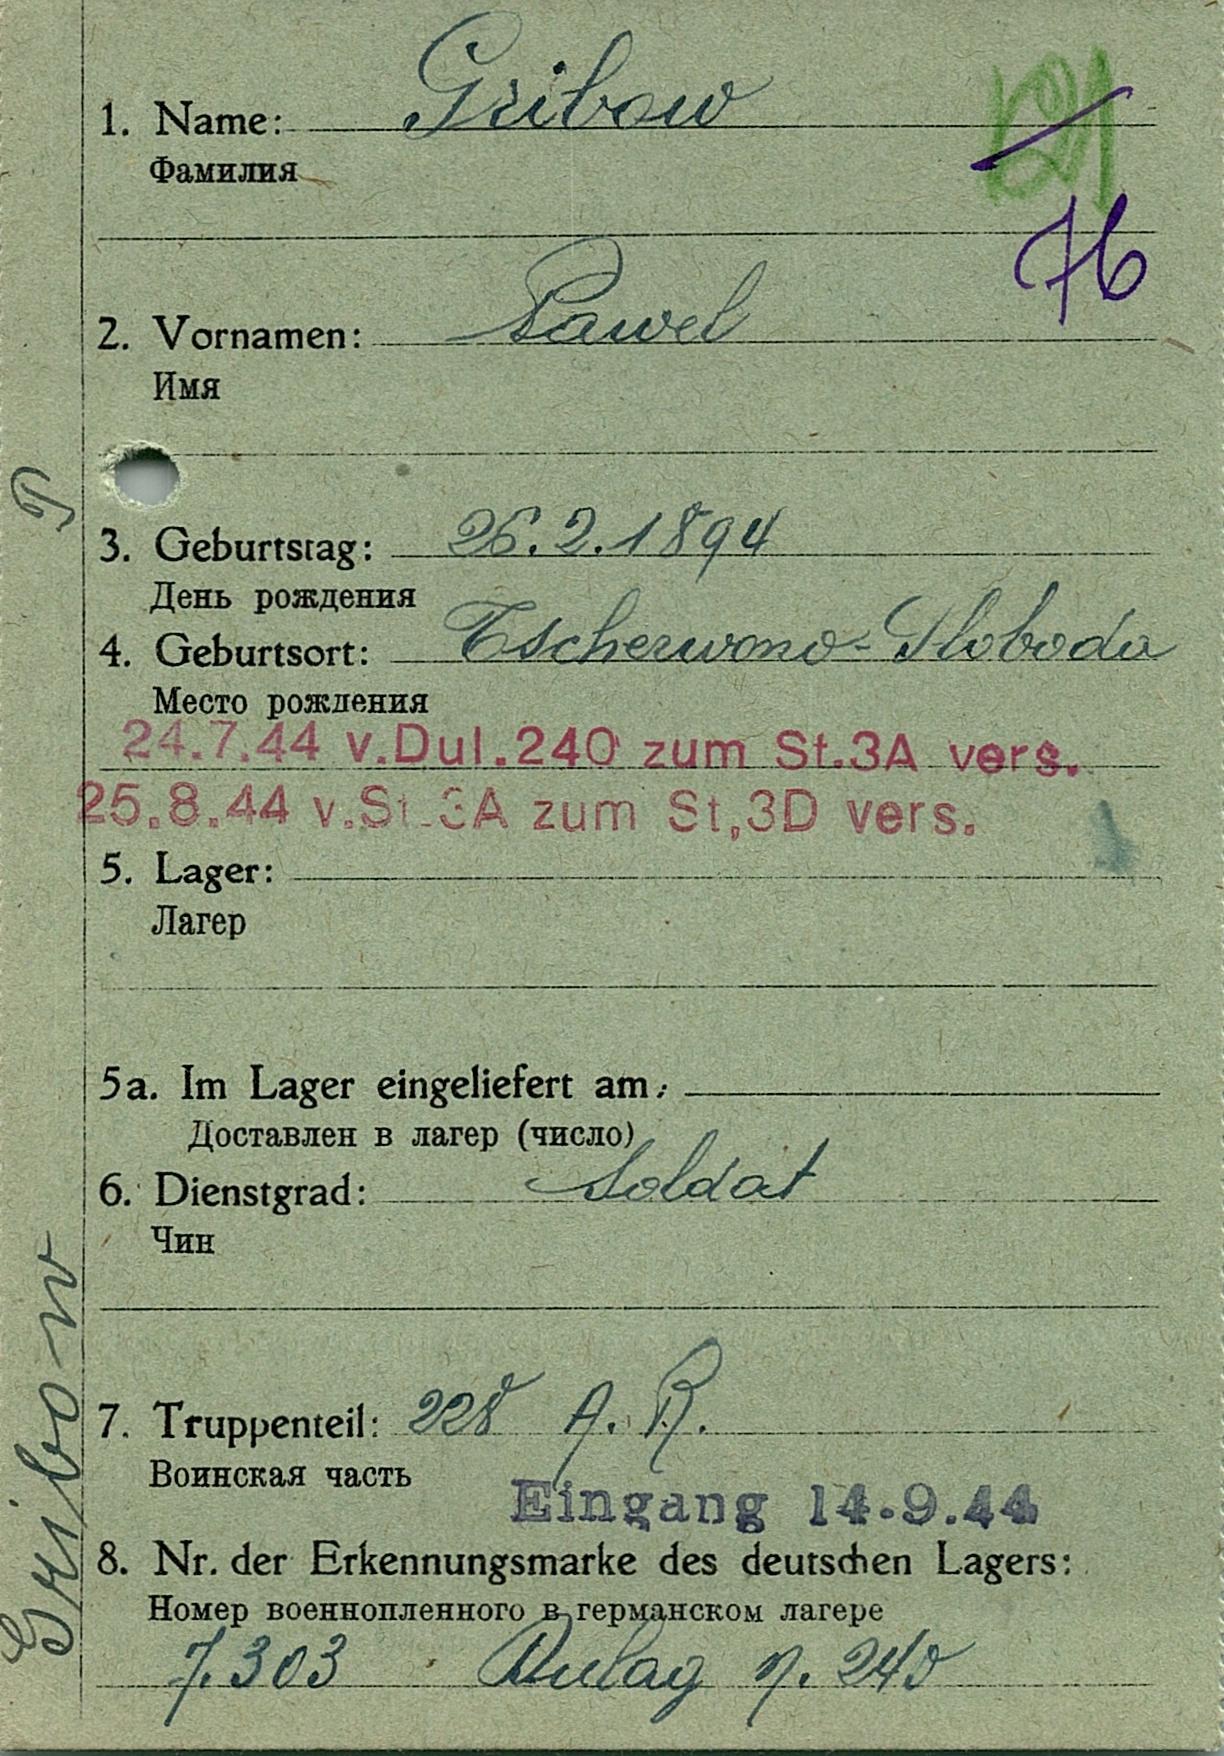 1. Name: Gribow
Фамилия
121
76
2. Vornamen: Pawel
Имя
3. Geburtstag: 26.2.1894
День рождения
4. Geburtsort: Tscherwono-Sloboda
Место рождения
24.7.44 v.Dul.240 zum St.3A vers.
25.8.44 v.St.3A zum St,3D vers.
5. Lager:
Лагер
5a. Im Lager eingeliefert am:
Доставлен в лагер (число)
6. Dienstgrad: Soldat
Чин
7. Truppenteil: 228 A. R.
Воинская часть
Eingang 14.9.44
8. Nr. der Erkennungsmarke des deutschen Lagers:
Номер военнопленного в германском лагере
7.303 Dulag n. 240
Gribow P